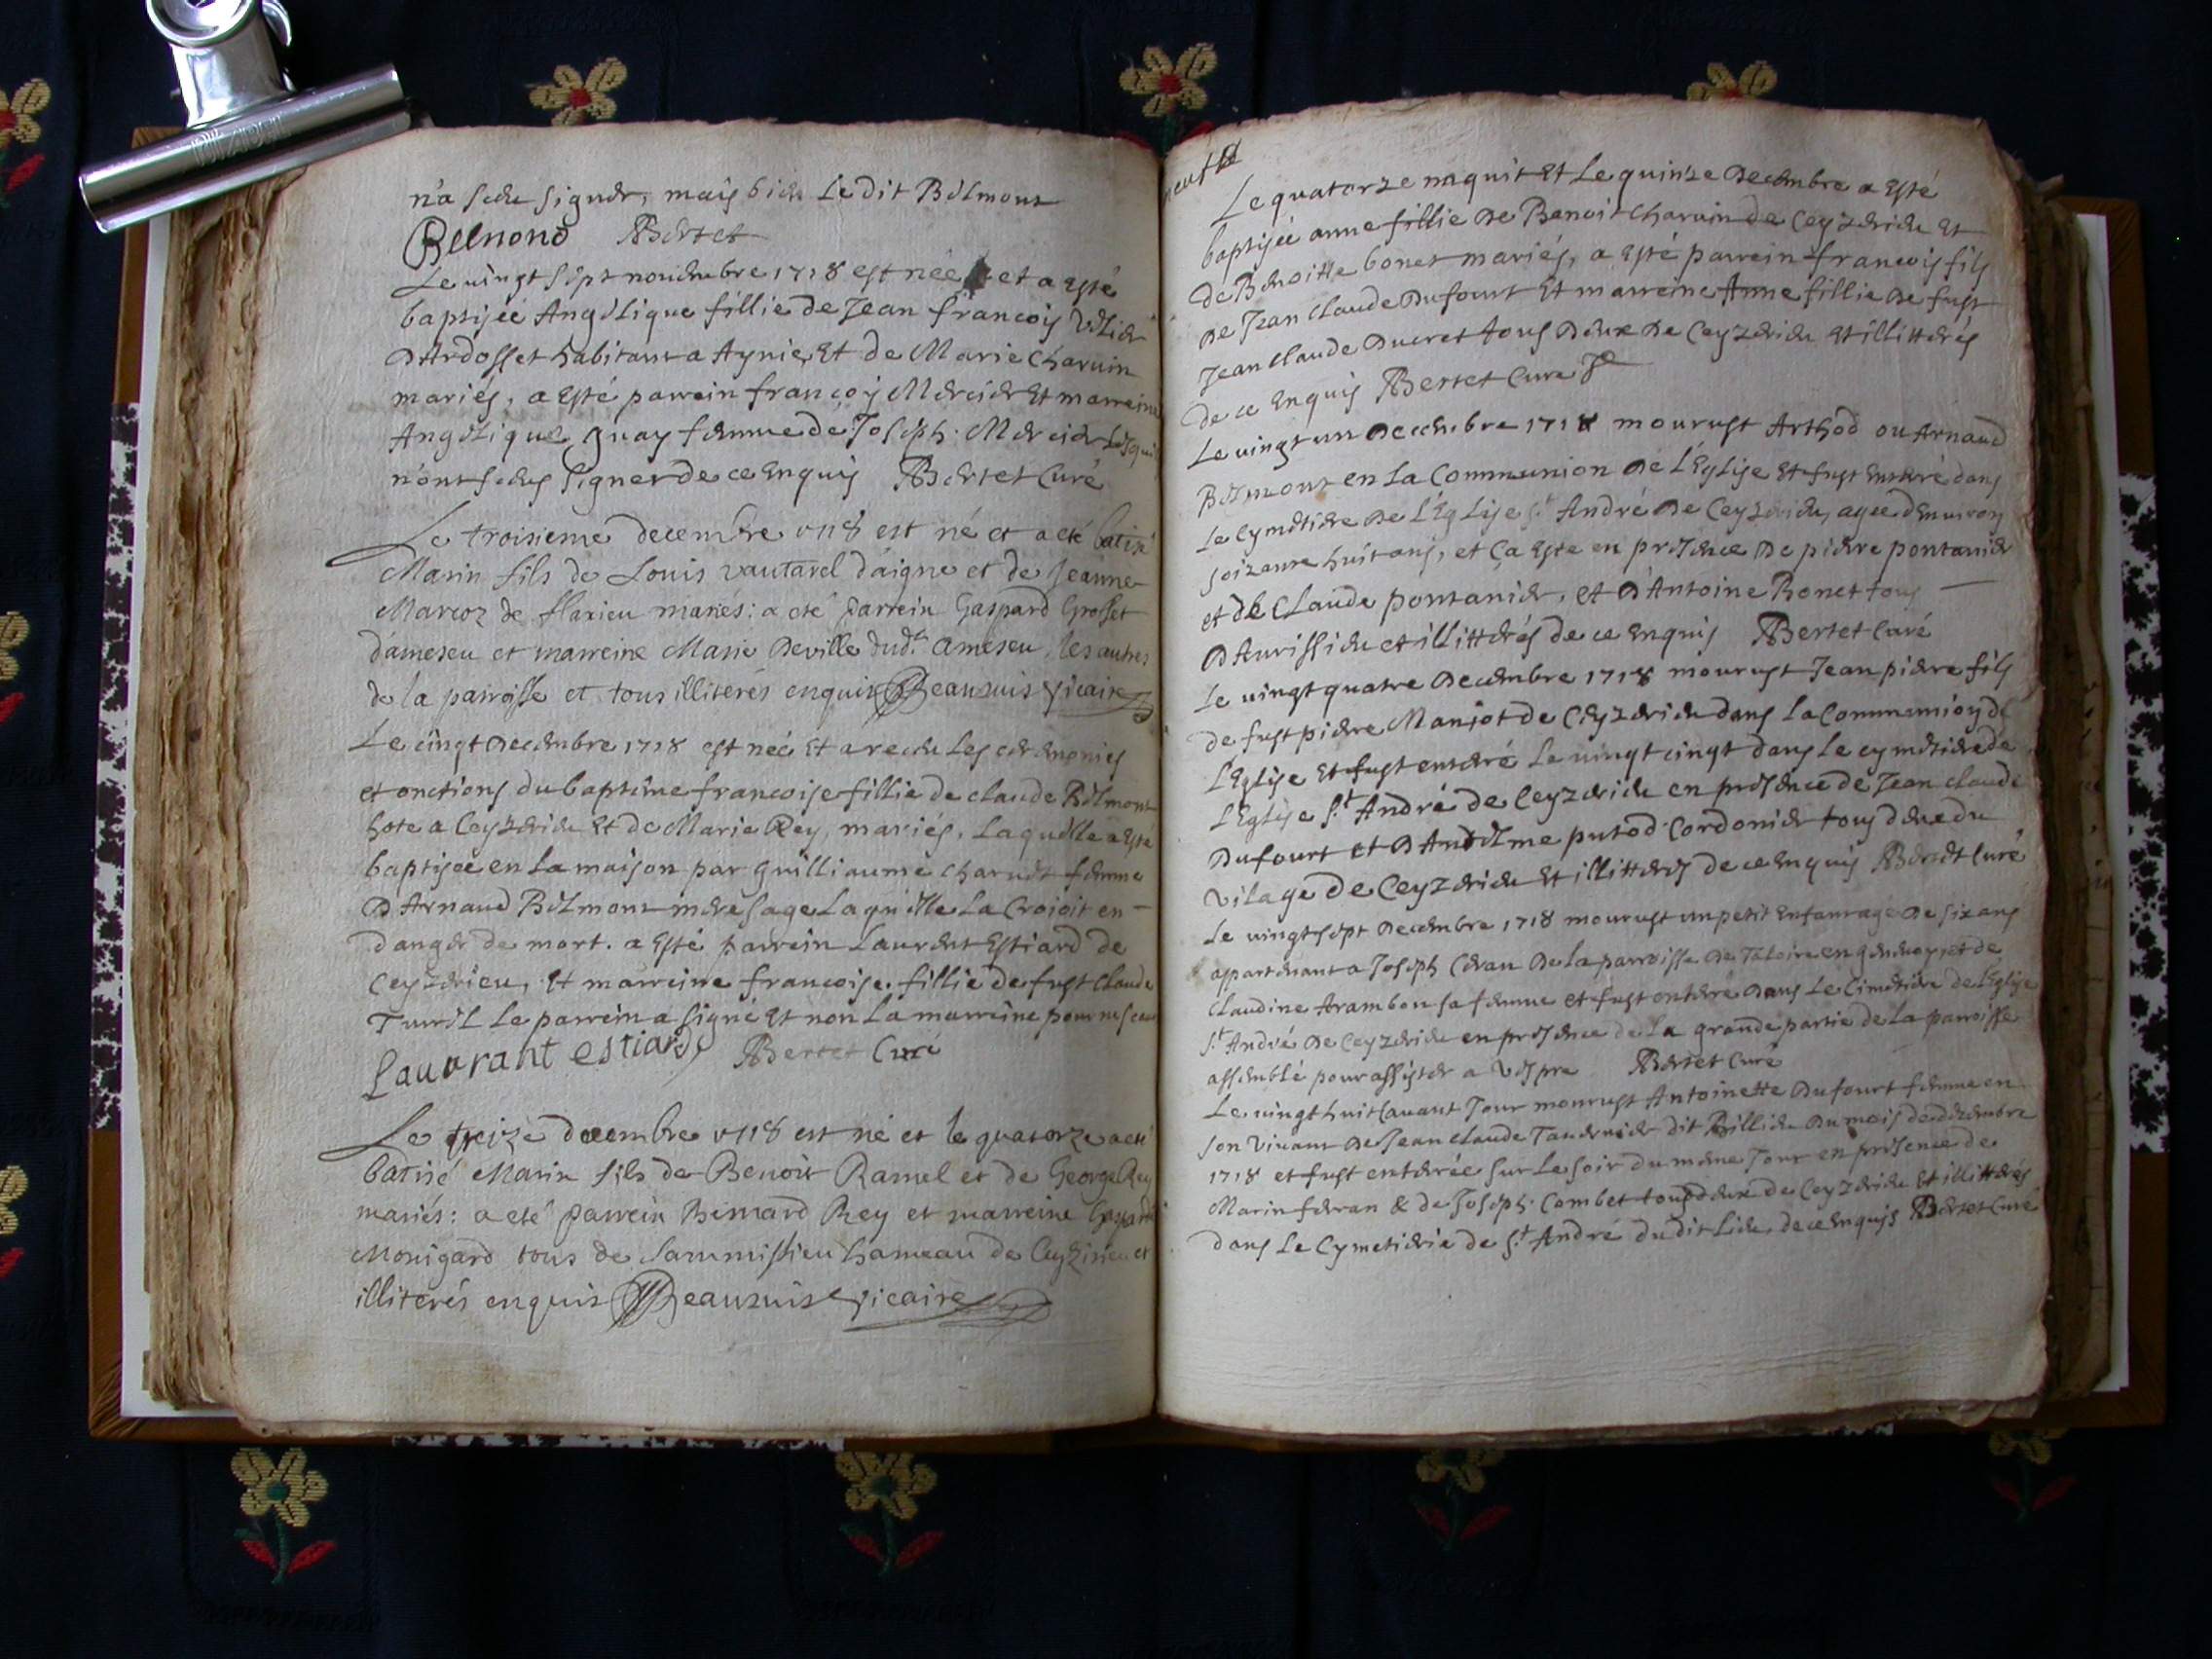 n'a sceu signer, mais bien Le dit Belmont
Belmond Bertet
Le vingt sept novembre 1718 est née et a esté
baptisée Angelique fillie de Jean francois
D'Ardosset habitant a Aynie, Et de Marie Charvin
mariés, a Esté parrein francois Mercier Et marreine
Angelique guay femme de Joseph Mercier Lesquels
n'ont sceus signer de ce Enquis Bertet Curé
Le troisieme decembre 1718 est né et a eté batisé
Marin fils de Louis vautarel d'aigne et de Jeanne
Marcoz de flaxieu mariés: a eté parrein Gaspard Grosset
d'ameseu et marreine Marie Deville dud.t ameseu, les autres
de la parroisse et tous illiterés enquis Beauvais vicaire
Le cingt Decembre 1718 est née Et a receu Les ceremonies
et onctions du baptême francoise fillie de claude Belmont
hote a Ceyzerieu Et de Marie Rey, mariés, Laquelle a Esté
baptisée en La maison par guilliaume Charvet femme
D'Arnaud Belmont mere sage Laquelle La Croioit en
danger de mort. a Esté parrein Laurent Estiard de
Ceyzerieu, Et marreine francoise fillie de fust Claude
Turril Le parrein a signé Et non La marreine pour ne sceu
Lauvrant estiard Bertet Curé
Le treize decembre 1718 est né et le quatorze a eté
batisé Marin fils de Benoit Ramel et de George Rey
mariés: a eté parrein Bernard Rey et marreine Gasparde
Monigard tous de Sammissieu hameau de Ceyzirieu et
illiterés enquis Beauvais vicaire
Le quatorze naquit Et Le quinze Decembre a Esté
baptisée anne fillie De Benoit Charvin de Ceyzerieu Et
de Benoitte bonet mariés, a Esté parrein francois fils
De Jean Claude Dufourt Et marreine Anne fillie De fust
Jean Claude Ducret tous Deux De Ceyzerieu Et illitterés
de ce Enquis Bertet Curé
Le vingt un Decembre 1718 mourust Arthod ou Arnaud
Belmont en La Communion De L'Eglise Et fust enterré dans
Le Cymetiere De L'Eglise S.t André De Ceyzerieu, agée d'environ
soizante huit ans, et ça Esté en presence De pierre pontanier
et de Claude pontanier, et D'Antoine Bonet tous
D'Avrissieu et illitterés de ce Enquis Bertet Curé
Le vingt quatre Decembre 1718 mourust Jean pierre fils
de fust pierre Manjot de Ceyzerieu dans La Communion de
L'Eglise Et fust enterré Le vingt cingt dans Le cymetiere de
L'Eglise S.t André de Ceyzerieu en presence de Jean claude
Dufourt et D'Antelme putod Cordonier tous deux du
vilage de Ceyzerieu Et illitterés de ce Enquis Bertet Curé
Le vingt sept Decembre 1718 mourust un petit Enfant agé De six ans
appartenant a Joseph De la parroisse De Taloire en genevoy, et de
Claudine Arambon sa femme et fust enterré Dans Le Cimetiere de L'Eglise
S.t André De Ceyzerieu en presence de La grande partie de La parroisse
assemblé pour assister a Vespre Bertet Curé
Le vingt huit avant Jour mourust Antoinette Dufourt femme en
son vivant De Jean claude Tavernier dit Billieu Du mois de dezembre
1718 et fust enterée sur Le soir du meme Jour en presence de
Marin feran & de Joseph Combet tous deux de Ceyzerieu Et illitterés
dans Le Cymetierie de S.t André du dit Lieu de ce Enquis Bertet Curé